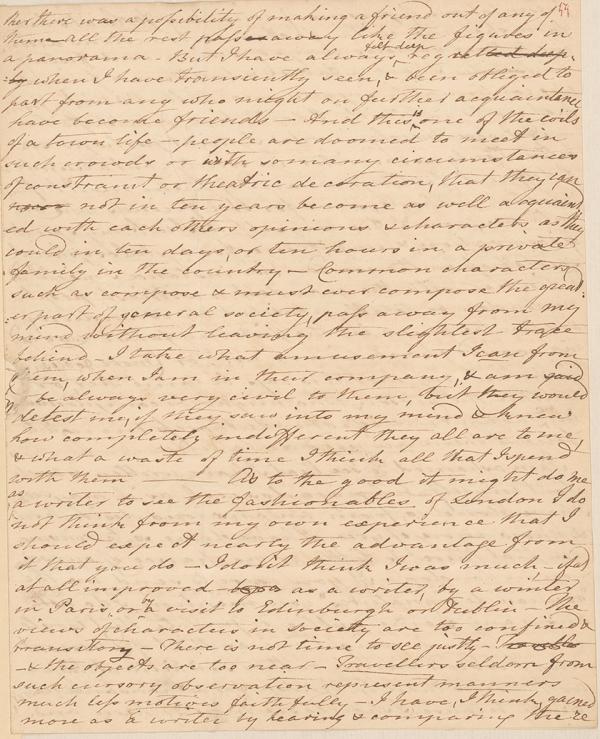 ther there was a possibility of making a friend out of any of
them all the rest pass away like the figures in
a panorama - But I have always felt deep regretted deep-
ly when I have transiently seen, & been obliged to
part from any who might on further acquaintance
have become friends - And this is one of the evils
of a town life - people are doomed to meet in
such crowds or with so many circumstances
of constraint or theatric decoration, that they can
never not in ten years become as well acquaint
ed with each others opinions & characters as they
could in ten days or ten hours in a private
family in the country - Common characters
such as compose & must ever compose the great
er part of general society, pass away from my
mind without leaving the slightest trace
behind - I take what amusement I can from
them, when I am in their company, & am said
be always very civil to them, but they would
detest me if they saw into my mind & knew
how completely indifferent they all are to me,
& what a waste of time I think all that I spend
with them - As to the good it might do me
as
a writer to see the fashionables of London I do
not think from my own experience that I
should expect nearly the advantage from
it that you do - I do not think I was much - if at
at all improved as a writer, by a winter
in Paris, or in a visit to Edinburgh or Dublin - The
views of characters in society are too confined &
transitory - There is not time to see justly -
- & the objects are too near - Travellers seldom from
such cursory observation represent manners
much less motives faithfully - I have, I think, gained
more as a writer by hearing & comparing the re